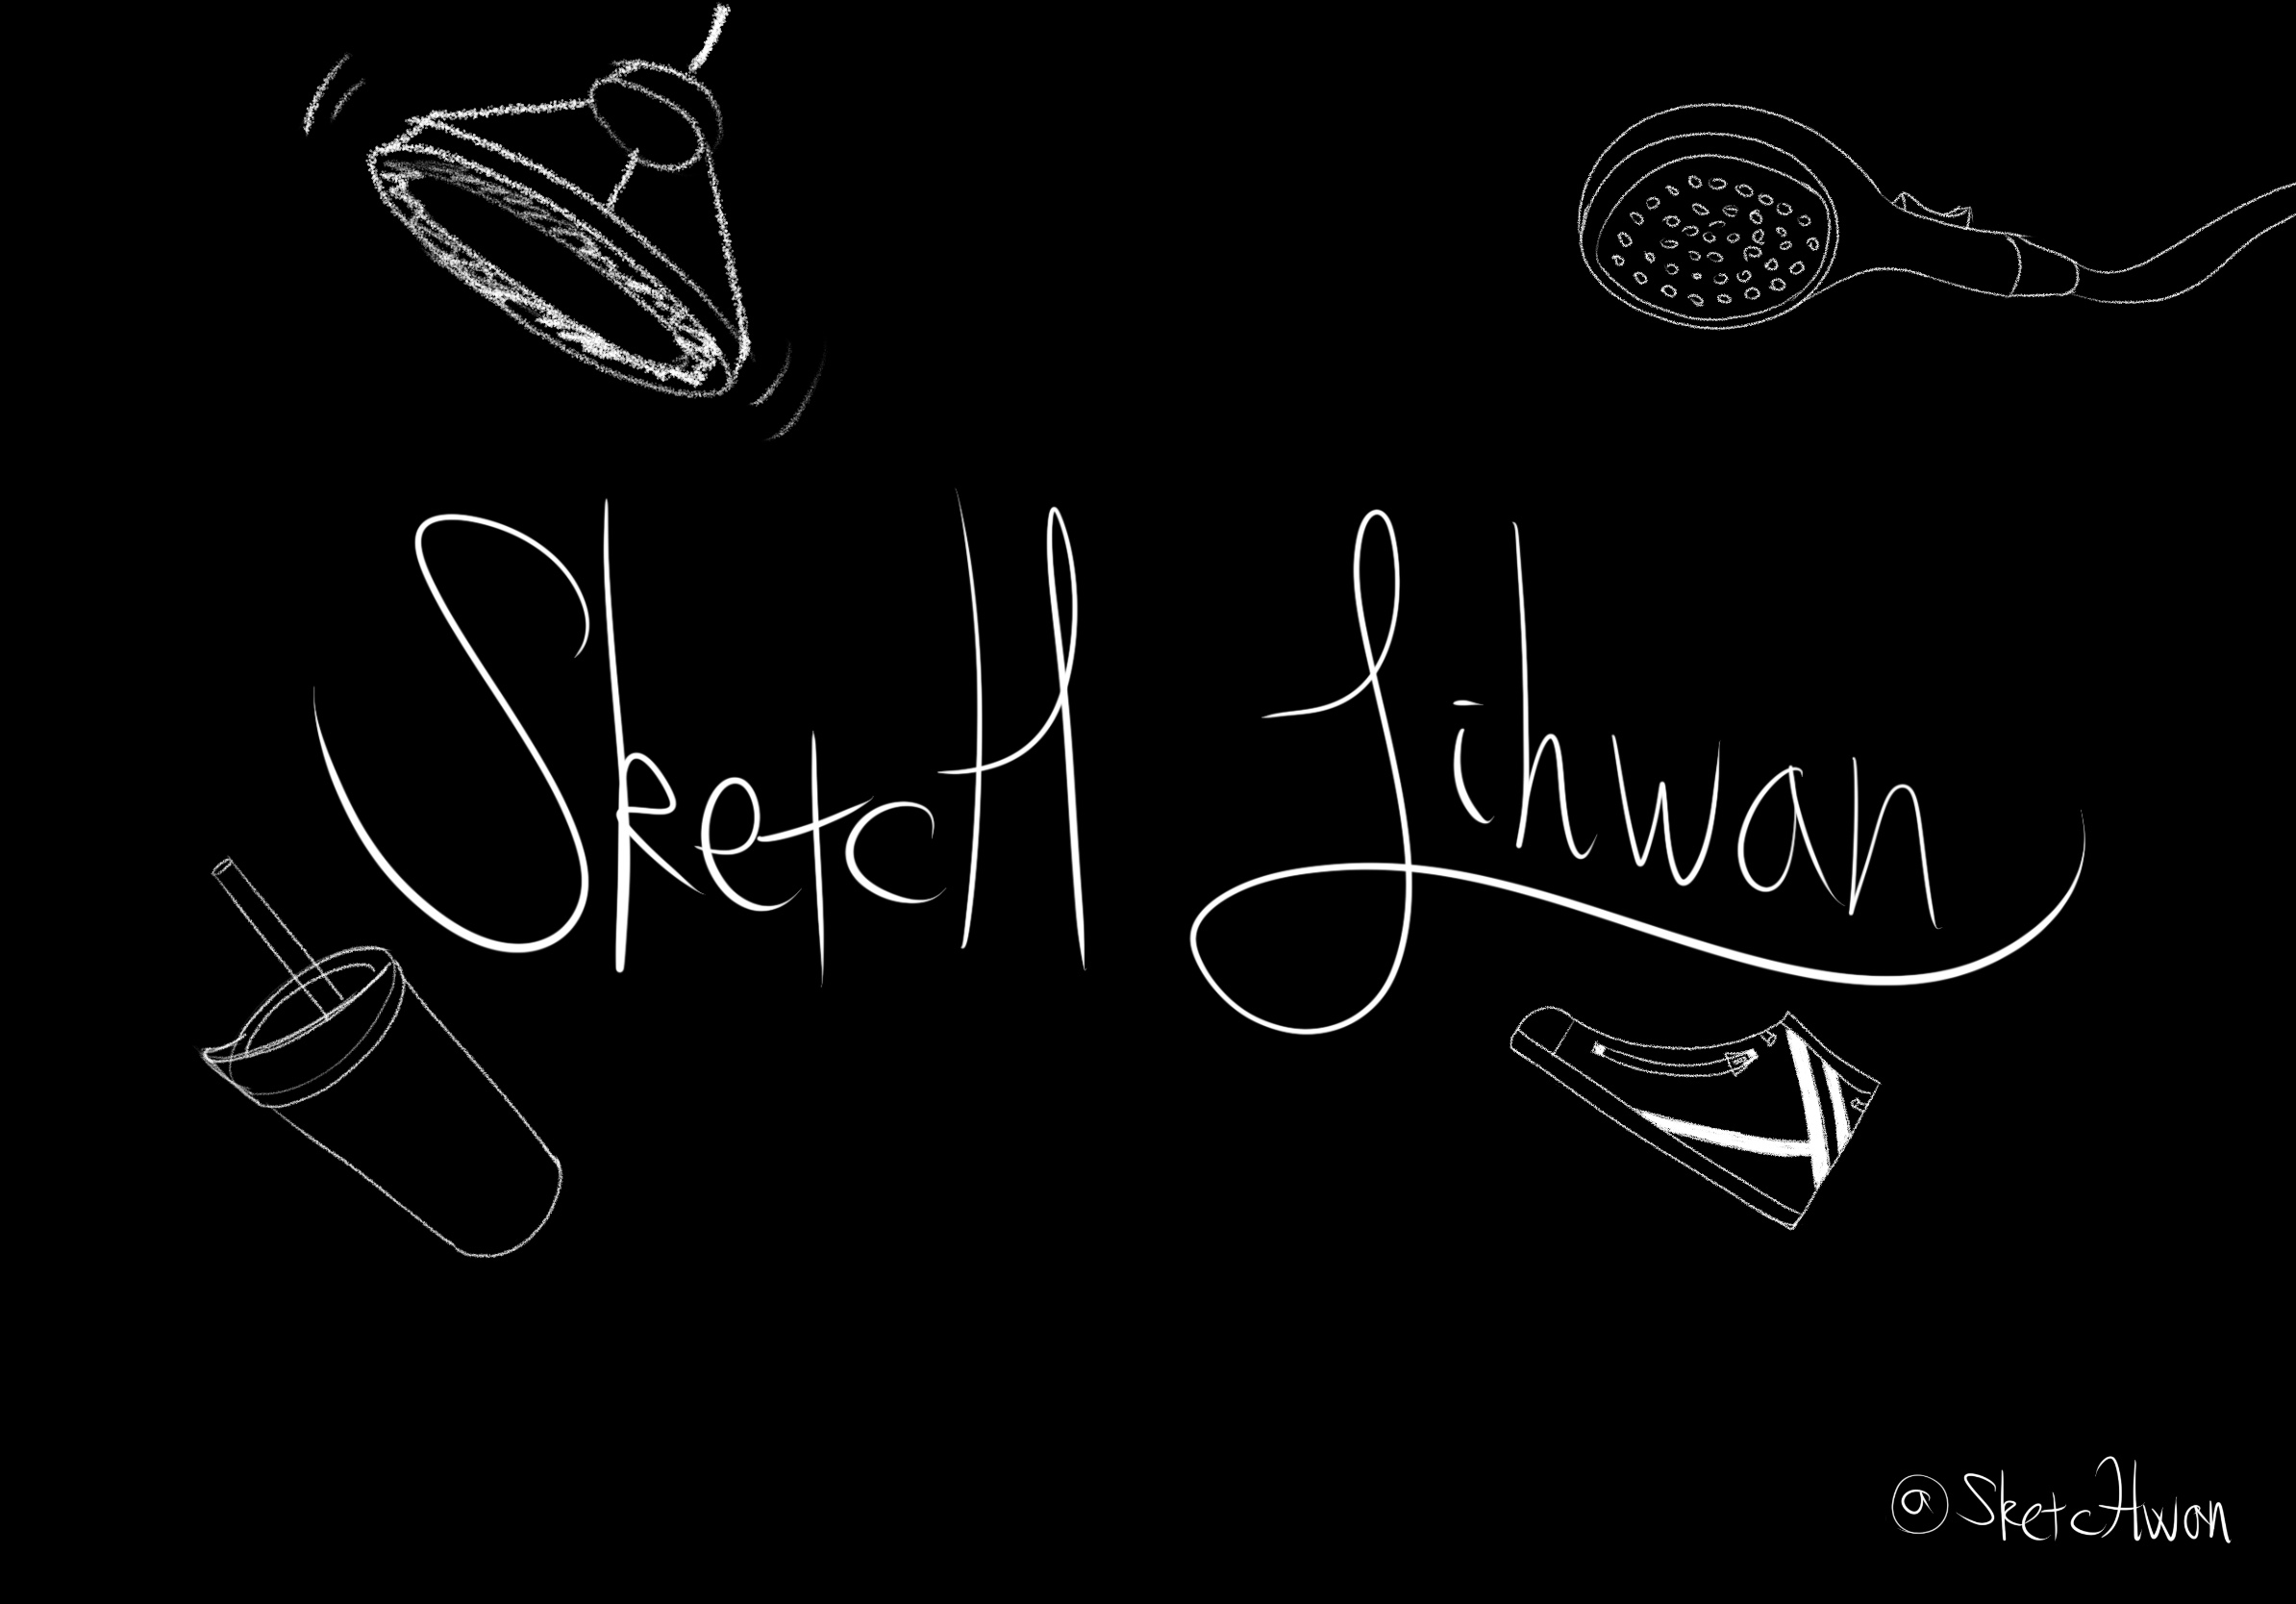 SketcH Jihwan
@SketcHwan